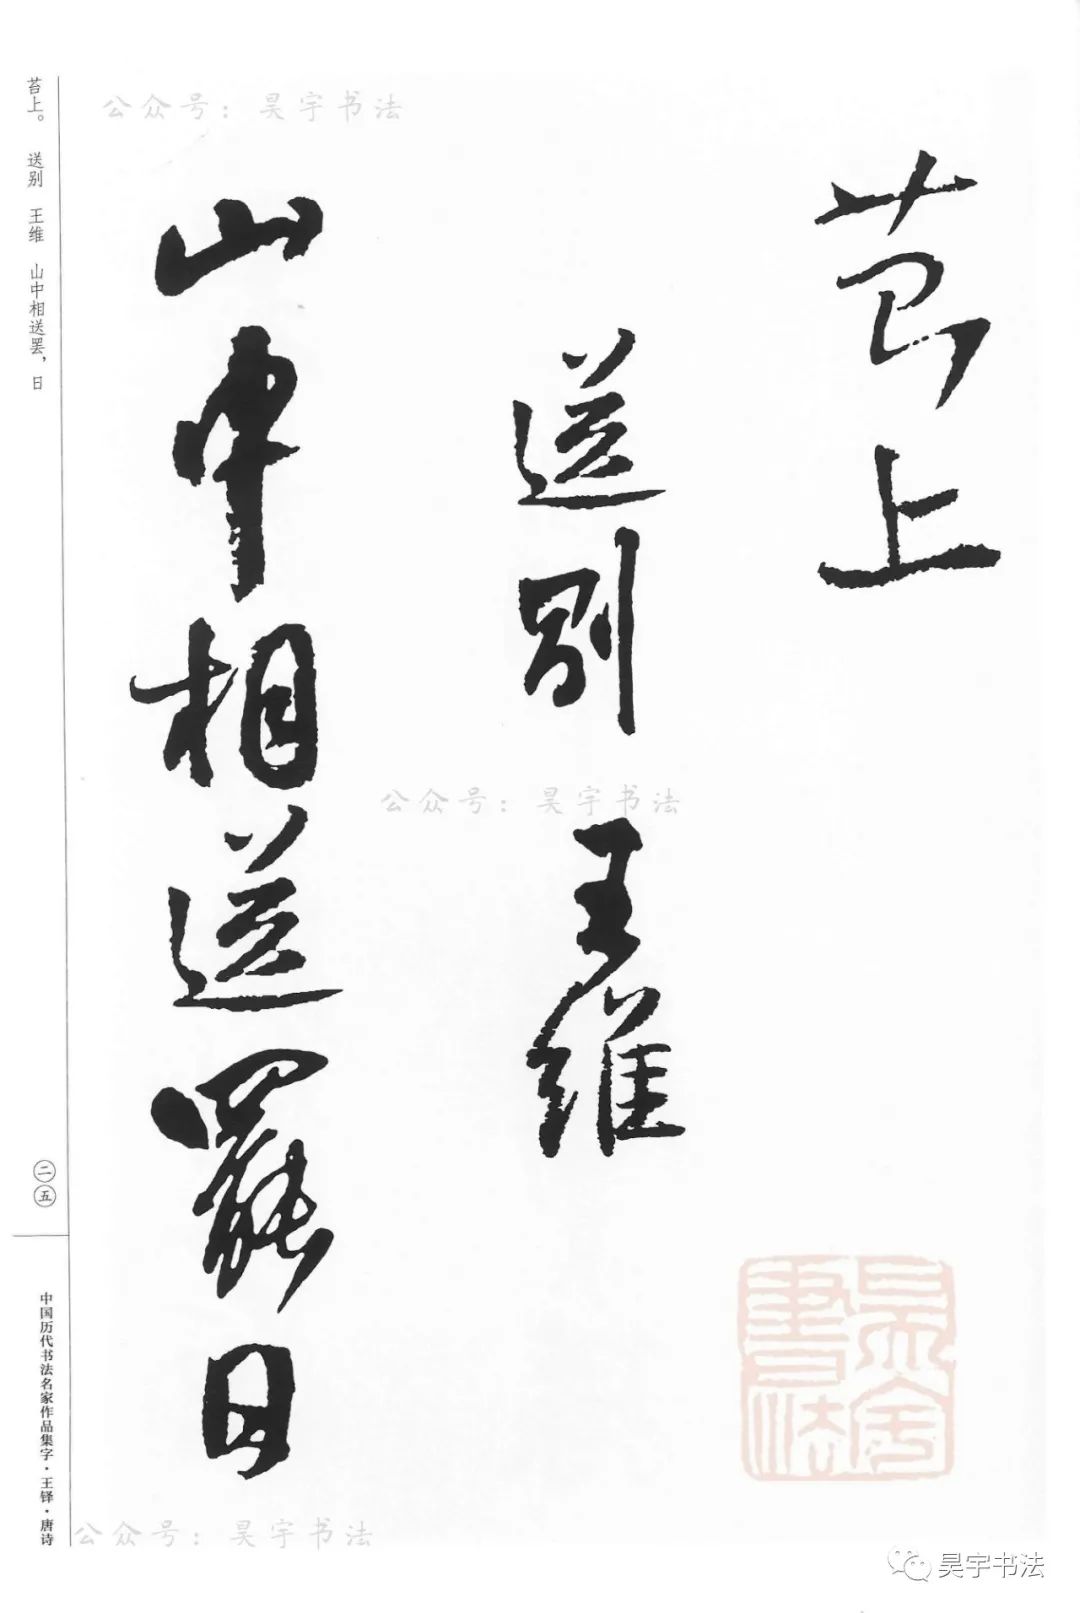 公众号：昊宇书法
苔上
送别 王维
山中相送罢日
公众号：昊宇书法
苔上。 送别 王维 山中相送罢，日
二五
中国历代书法名家作品集字·王铎·唐诗
昊宇書法
公众号：昊宇书法
昊宇书法